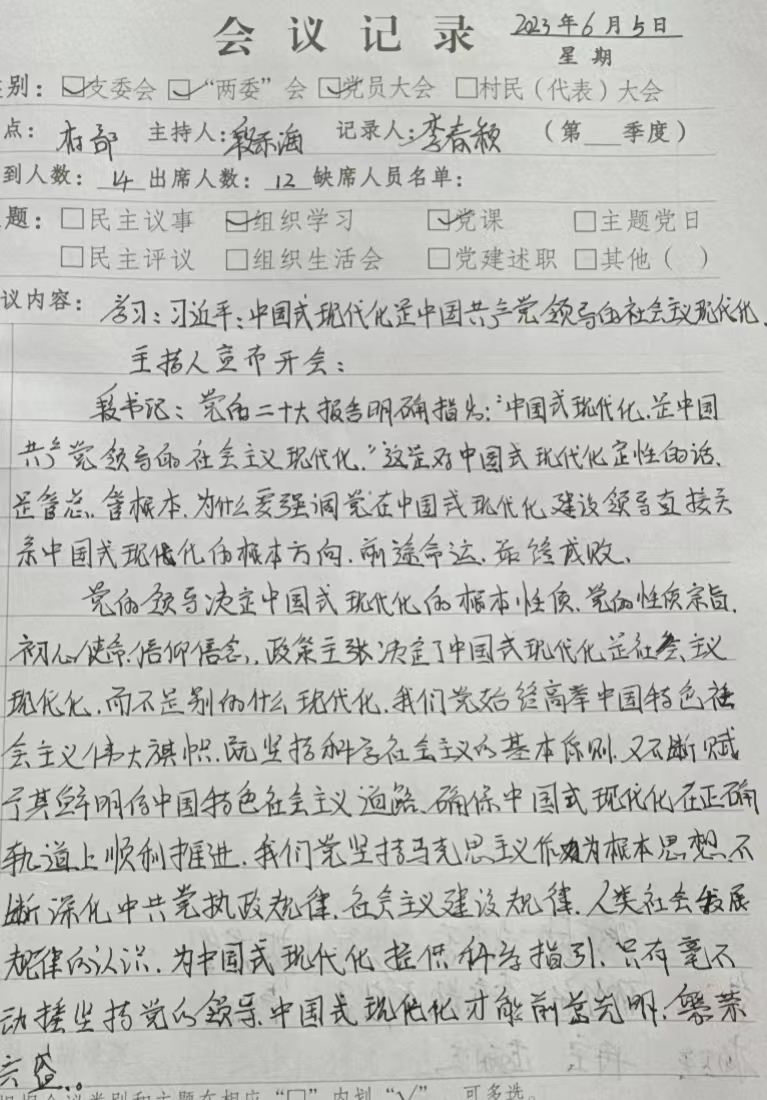 会议记录 2023年6月5日
星期
别：☑支委会 ☑“两委”会 ☑党员大会 □村民（代表）大会
点：村部 主持人：段示海 记录人：李春颖 （第 季度）
到人数：14 出席人数：12 缺席人员名单：
题：□民主议事 ☑组织学习 ☑党课 □主题党日
□民主评议 □组织生活会 □党建述职 □其他（ ）
议内容：学习：习近平：中国式现代化是中国共产党领导的社会主义现代化.
主持人宣布开会：
段书记：党的二十大报告明确指出：“中国式现代化.是中国
共产党领导的社会主义现代化.”这是对中国式现代化定性的话.
是管总.管根本.为什么要强调党在中国式现代化建设领导直接关
系中国式现代化的根本方向.前途命运.最终成败.
党的领导决定中国式现代化的根本性质.党的性质宗旨.
初心使命.信仰信念.政策主张决定了中国式现代化是社会主义
现代化.而不是别的什么现代化.我们党始终高举中国特色社
会主义伟大旗帜.既坚持科学社会主义的基本原则.又不断赋
予其鲜明的中国特色社会主义道路.确保中国式现代化在正确
轨道上顺利推进.我们党坚持马克思主义作为根本思想.不
断深化中共党执政规律.社会主义建设规律.人类社会发展
规律的认识.为中国式现代化提供科学指引.只有毫不
动摇坚持党的领导.中国式现代化才能前景光明.繁荣
兴盛..
根据会议类别和主题在相应“□”内划“√”，可多选。